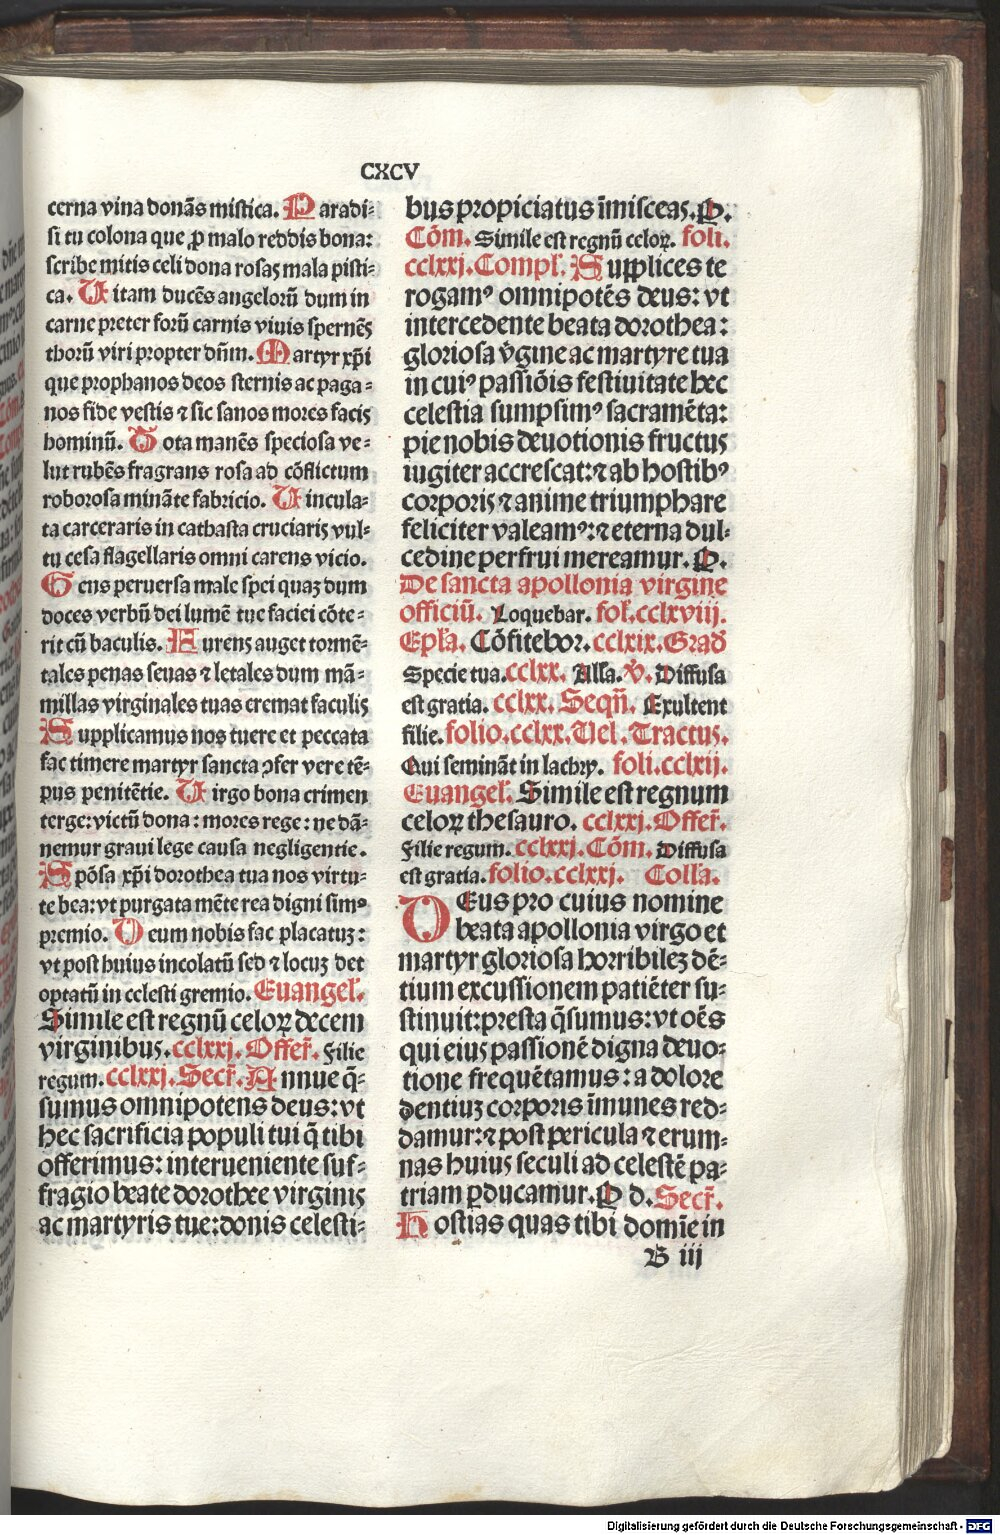 CXCV
cerna vina donãs mistica. Paradi⸗
si tu colona que ꝓ malo reddis bona:
scribe mitis celi dona rosaʒ mala pisti⸗
ca. Uitam ducẽs angelorũ dum in
carne preter forũ carnis viuis spernẽs
thorũ viri propter dñm. Martyr xp̃i
que prophanos deos sternis ac paga⸗
nos fide vestis ⁊ sic sanos mores facis
hominũ. Tota manẽs speciosa ve⸗
lut rubẽs fragrans rosa ad cõflictum
roborosa minãte fabricio. Uincula⸗
ta carceraris in cathasta cruciaris vul⸗
tu cesa flagellaris omni carens vicio.
Gens peruersa male spei quaʒ dum
doces verbũ dei lumẽ tue faciei cõte⸗
rit cũ baculis. Furens auget tormẽ⸗
tales penas seuas ⁊ letales dum mã⸗
millas virginales tuas cremat faculis
Supplicamus nos tuere et peccata
fac timere martyr sancta ꝯfer vere tẽ⸗
pus penitẽtie. Uirgo bona crimen
terge: victũ dona: mores rege: ne dã⸗
nemur graui lege causa negligentie.
Spõsa xp̃i dorothea tua nos virtu⸗
te bea: vt purgata mẽte rea digni simꝰ
premio. Deum nobis fac placatuʒ:
vt post huius incolatũ sed ⁊ locuʒ det
optatũ in celesti gremio. Euangel̃.
Simile est regnũ celoꝝ decem
virginibus. cclxxj. Offer̃. Filie
regum. cclxxj. Secr̃. Annue q̃⸗
sumus omnipotens deus: vt
hec sacrificia populi tui q̃ tibi
offerimus: interueniente suf⸗
fragio beate dorothee virginis
ac martyris tue: donis celesti⸗
bus propiciatus ĩmisceas. P.
Cõm. Simile est regnũ celoꝝ. foli.
cclxxj. Compl̃. Supplices te
rogamꝰ omnipotẽs deus: vt
intercedente beata dorothea:
gloriosa v̾gine ac martyre tua
in cuiꝰ passiõis festiuitate hec
celestia sumpsimꝰ sacramẽta:
pie nobis deuotionis fructus
iugiter accrescat: ⁊ ab hostibꝰ
corporis ⁊ anime triumphare
feliciter valeamꝰ: ⁊ eterna dul⸗
cedine perfrui mereamur. P.
De sancta apollonia virgine
officiũ. Loquebar. fol̃. cclxviij.
Epl̃a. Cõfitebor. cclxix. Grad
Specie tua. cclxx. All̃a. V̾. Diffusa
est gratia. cclxx. Seqñ. Exultent
filie. folio. cclxx. Uel. Tractus.
Qui seminãt in lachry. foli. cclxij.
Euangel̃. Simile est regnum
celoꝝ thesauro. cclxxj. Offer̃.
Filie regum. cclxxj. Cõm. Diffusa
est gratia. folio. cclxxj. Colla.
DEus pro cuius nomine
beata apollonia virgo et
martyr gloriosa horribileʒ dẽ⸗
tium excussionem patiẽter su⸗
stinuit: presta q̃sumus: vt oẽs
qui eius passionẽ digna deuo⸗
tione frequẽtamus: a dolore
dentiuʒ corporis ĩmunes red⸗
damur: ⁊ post pericula ⁊ erum⸗
nas huius seculi ad celestẽ pa⸗
triam ꝑducamur. P d. Secr̃.
Hostias quas tibi domĩe in
B iij
Digitalisierung gefördert durch die Deutsche Forschungsgemeinschaft - DFG